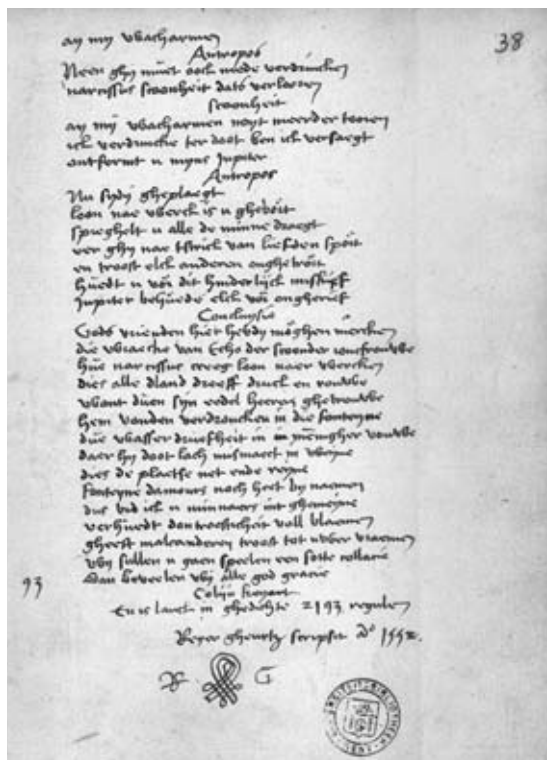 38
ay my wacharmen
Antropos
Neen ghy muet ooch mede verdrincken
narcissus scoonheit dats verlaeren
scoonheit
ay my wacharmen noyt meerder tooren
ick verdrincke ter doot ben ick versaegt
ontfermt u myns Jupiter
Antropos
Nu sydy gheplaegt
loon nae werck is u
spieghelt u alle de minne draegt
eer ghy nae tstrick van liefden
en troost elck anderen
huedt u voir dit hinderlijck
Jupiter behuede elck voir ongherief
Conclusie
Gods vrienden hier hebdy moghen mercken
die wraecke van Echo der scoonder ioncfrouwe
hue narcissus creeg loon naer wercken
dies alle dland dreeff druck en rouwe
want duen syn eedel heeren ghetrouwe
hem vonden verdroncken in die fonteyne
due wasser druefheit in menigher vouwe
daer hy doot lach mismaect in weyne
dies de plaetse net ende reyne
Fonteyne damours noch heet by naemen
dus bid ick u minnaers int ghemeyne
verhuedt dontroosticheit voll blaemen
gheeft malcanderen troost tot uwer vraemen
wy sullen u gaen speelen een sotte collacie
dan beveelen wy alle god gracie
93
Colijn keyart
En is lanct in ghedichte 2193 regulen
Reyer gheurtz scripsit Ao 1552.
R G